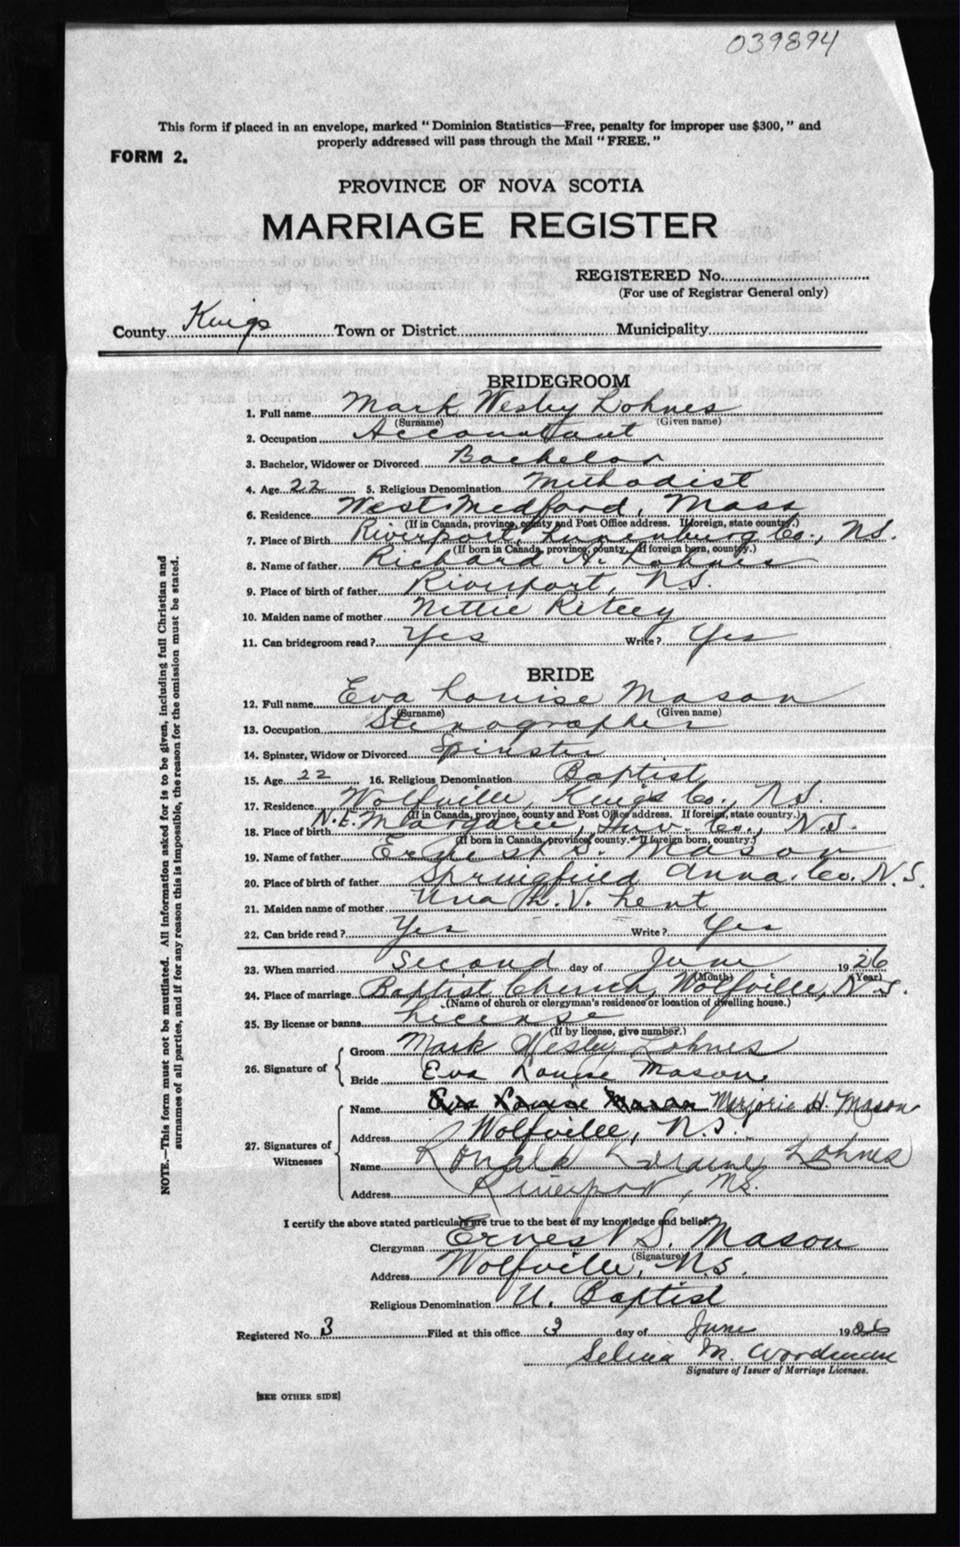 039894
This form if placed in an envelope, marked "Dominion Statistics—Free, penalty for improper use $300," and
properly addressed will pass through the Mail "FREE."
FORM 2.
PROVINCE OF NOVA SCOTIA
MARRIAGE REGISTER
REGISTERED No.
(For use of Registrar General only)
County Kings Town or District Municipality
BRIDEGROOM
1. Full name Mark Wesley Lohnes
(Surname) (Given name)
2. Occupation Accountant
3. Bachelor, Widower or Divorced Bachelor
4. Age 22 5. Religious Denomination Methodist
6. Residence West Medford, Mass
(If in Canada, province, county and Post Office address. If foreign, state country.)
7. Place of Birth Riverport, Lunenburg Co., N.S.
(If born in Canada, province, county. If foreign born, country.)
8. Name of father Richard A. Lohnes
9. Place of birth of father Riverport, N.S.
10. Maiden name of mother Nettie
11. Can bridegroom read? Yes Write? Yes
BRIDE
12. Full name Eva Louise Mason
(Surname) (Given name)
13. Occupation Stenographer
14. Spinster, Widow or Divorced Spinster
15. Age 22 16. Religious Denomination Baptist
17. Residence Wolfville, Kings Co., N.S.
(If in Canada, province, county and Post Office address. If foreign, state country.)
18. Place of birth N.E. Margaree, Inv. Co., N.S.
(If born in Canada, province, county. If foreign born, country.)
19. Name of father Ernest S. Mason
20. Place of birth of father Springfield Anna. Co. N.S.
21. Maiden name of mother Una L. V. Lent
22. Can bride read? Yes Write? Yes
23. When married Second day of June 1926
(Month) (Year)
24. Place of marriage Baptist Church, Wolfville, N.S.
(Name of church or clergyman's residence or location of dwelling house.)
25. By license or banns License
(If by license, give number.)
26. Signature of Groom Mark Wesley Lohnes
Bride Eva Louise Mason
27. Signatures of Witnesses Name Eva Louise Mason Marjorie H. Mason
Address Wolfville, N.S.
Name Ronald Lohnes
Address Riverport, N.S.
I certify the above stated particulars are true to the best of my knowledge and belief.
Clergyman Ernest S. Mason
(Signature)
Address Wolfville, N.S.
Religious Denomination U. Baptist
Registered No. 3 Filed at this office 3 day of June 1926
Selina M. Woodman
Signature of Issuer of Marriage Licenses.
[SEE OTHER SIDE]
NOTE.—This form must not be mutilated. All information asked for is to be given, including full Christian and
surnames of all parties, and if for any reason this is impossible, the reason for the omission must be stated.